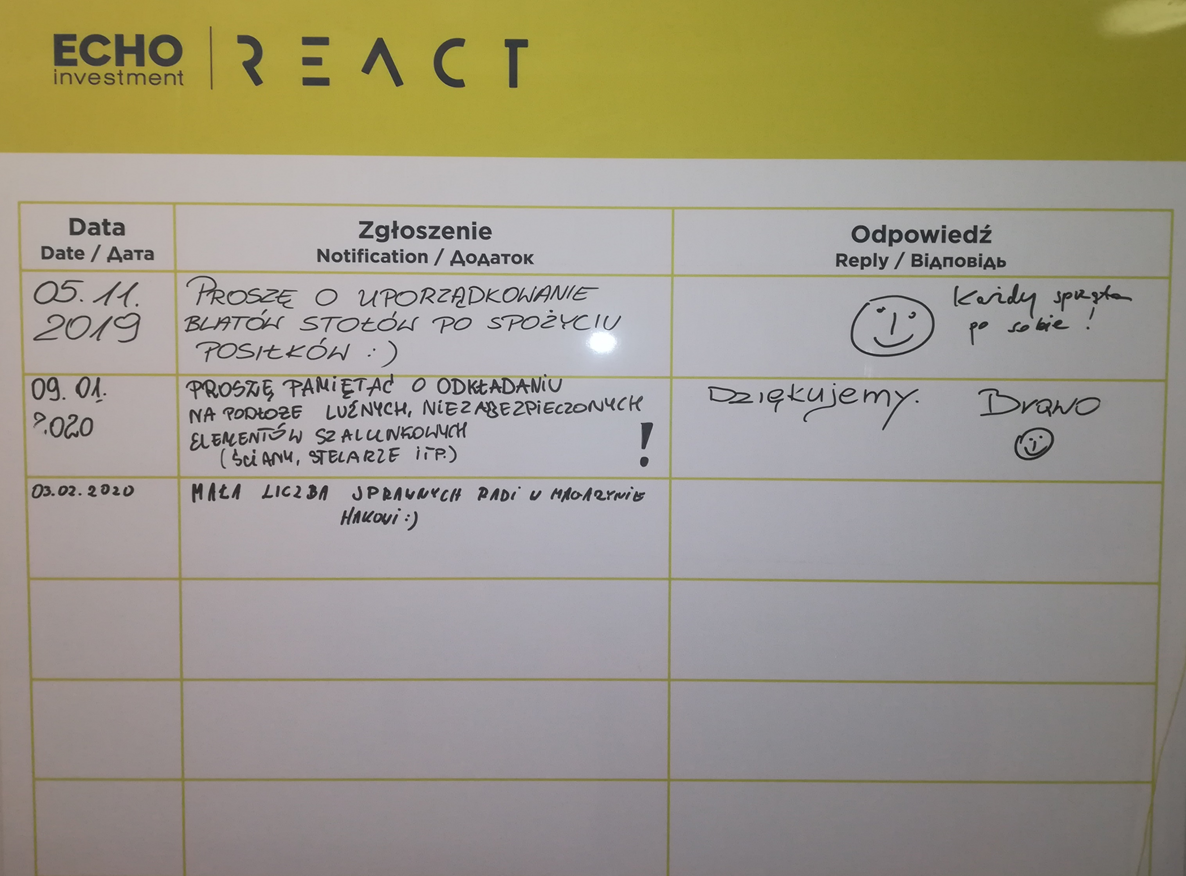 ECHO
investment
REACT
Data
Date / Дата
Zgłoszenie
Notification / Додаток
Odpowiedź
Reply / Відповідь
05.11.
2019
PROSZĘ O UPORZĄDKOWANIE
BLATÓW STOŁÓW PO SPOŻYCIU
POSIŁKÓW :)
Każdy sprząta
po sobie !
09.01.
2020
PROSZĘ PAMIĘTAĆ O ODKŁADANIU
NA PODŁOŻE LUŹNYCH, NIEZABEZPIECZONYCH
ELEMENTÓW SZALUNKOWYCH
(ŚCIANY, STELARZE ITP.) !
Dziękujemy. Brawo
03.02.2020
MAŁA LICZBA SPRAWNYCH RADI W MAGAZYNIE
HAKOWI :)